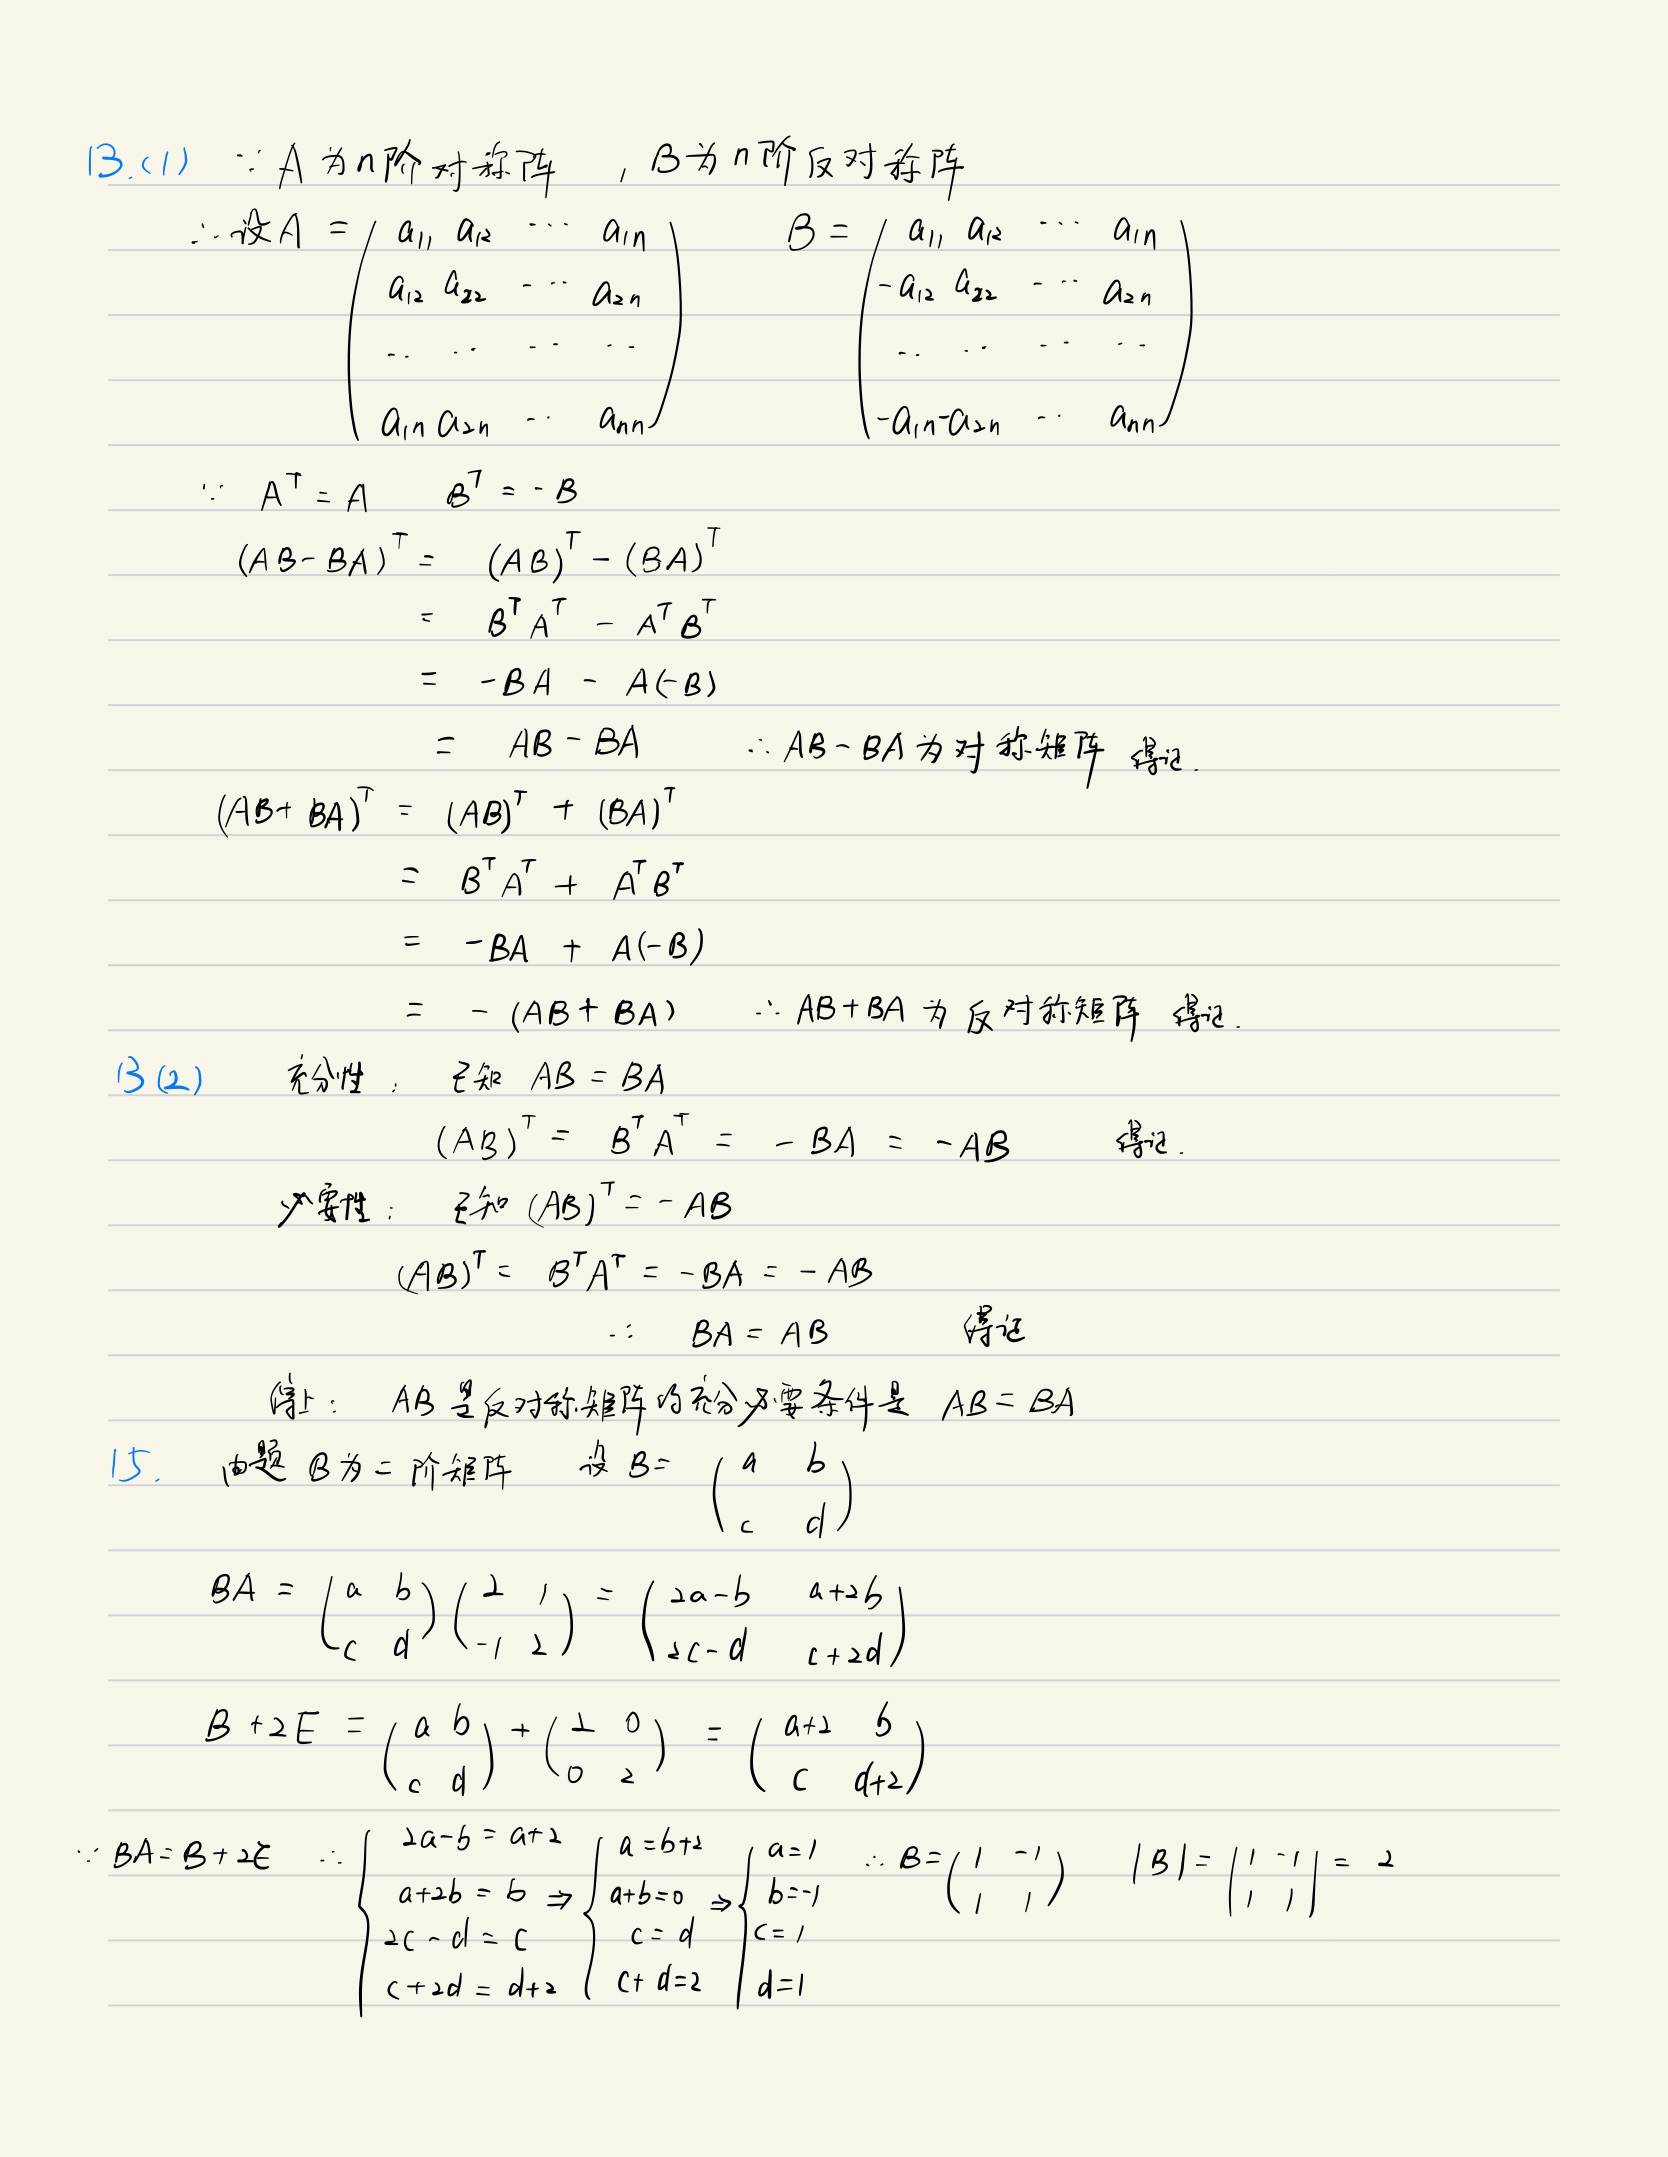 13.(1) ∵ A为n阶对称阵 , B为n阶反对称阵
∴设A = ( a₁₁ a₁₂ ⋯ a₁ₙ B = ( a₁₁ a₁₂ ⋯ a₁ₙ
a₁₂ a₂₂ ⋯ a₂ₙ -a₁₂ a₂₂ ⋯ a₂ₙ
⋯ ⋯ ⋯ ⋯ ⋯ ⋯ ⋯ ⋯
a₁ₙ a₂ₙ ⋯ aₙₙ ) -a₁ₙ -a₂ₙ ⋯ aₙₙ )
∵ Aᵀ = A Bᵀ = -B
(AB-BA)ᵀ = (AB)ᵀ - (BA)ᵀ
= BᵀAᵀ - AᵀBᵀ
= -BA - A(-B)
= AB - BA ∴ AB-BA为对称矩阵 得证.
(AB+BA)ᵀ = (AB)ᵀ + (BA)ᵀ
= BᵀAᵀ + AᵀBᵀ
= -BA + A(-B)
= -(AB+BA) ∴ AB+BA 为反对称矩阵 得证.
13(2) 充分性: 已知 AB = BA
(AB)ᵀ = BᵀAᵀ = -BA = -AB 得证.
必要性: 已知 (AB)ᵀ = -AB
(AB)ᵀ = BᵀAᵀ = -BA = -AB
∴ BA = AB 得证
综上: AB是反对称矩阵的充分必要条件是 AB = BA
15. 由题 B为二阶矩阵 设 B = ( a b
c d )
BA = ( a b ( 2 1 = ( 2a-b a+2b
c d ) -1 2 ) 2c-d c+2d )
B+2E = ( a b + ( 2 0 = ( a+2 b
c d ) 0 2 ) c d+2 )
∵ BA=B+2E ∴ { 2a-b = a+2 { a=b+2 { a=1 ∴ B= ( 1 -1 |B| = | 1 -1 | = 2
a+2b = b ⇒ a+b=0 ⇒ b=-1 1 1 ) 1 1
2c-d = c c=d c=1
c+2d = d+2 c+d=2 d=1